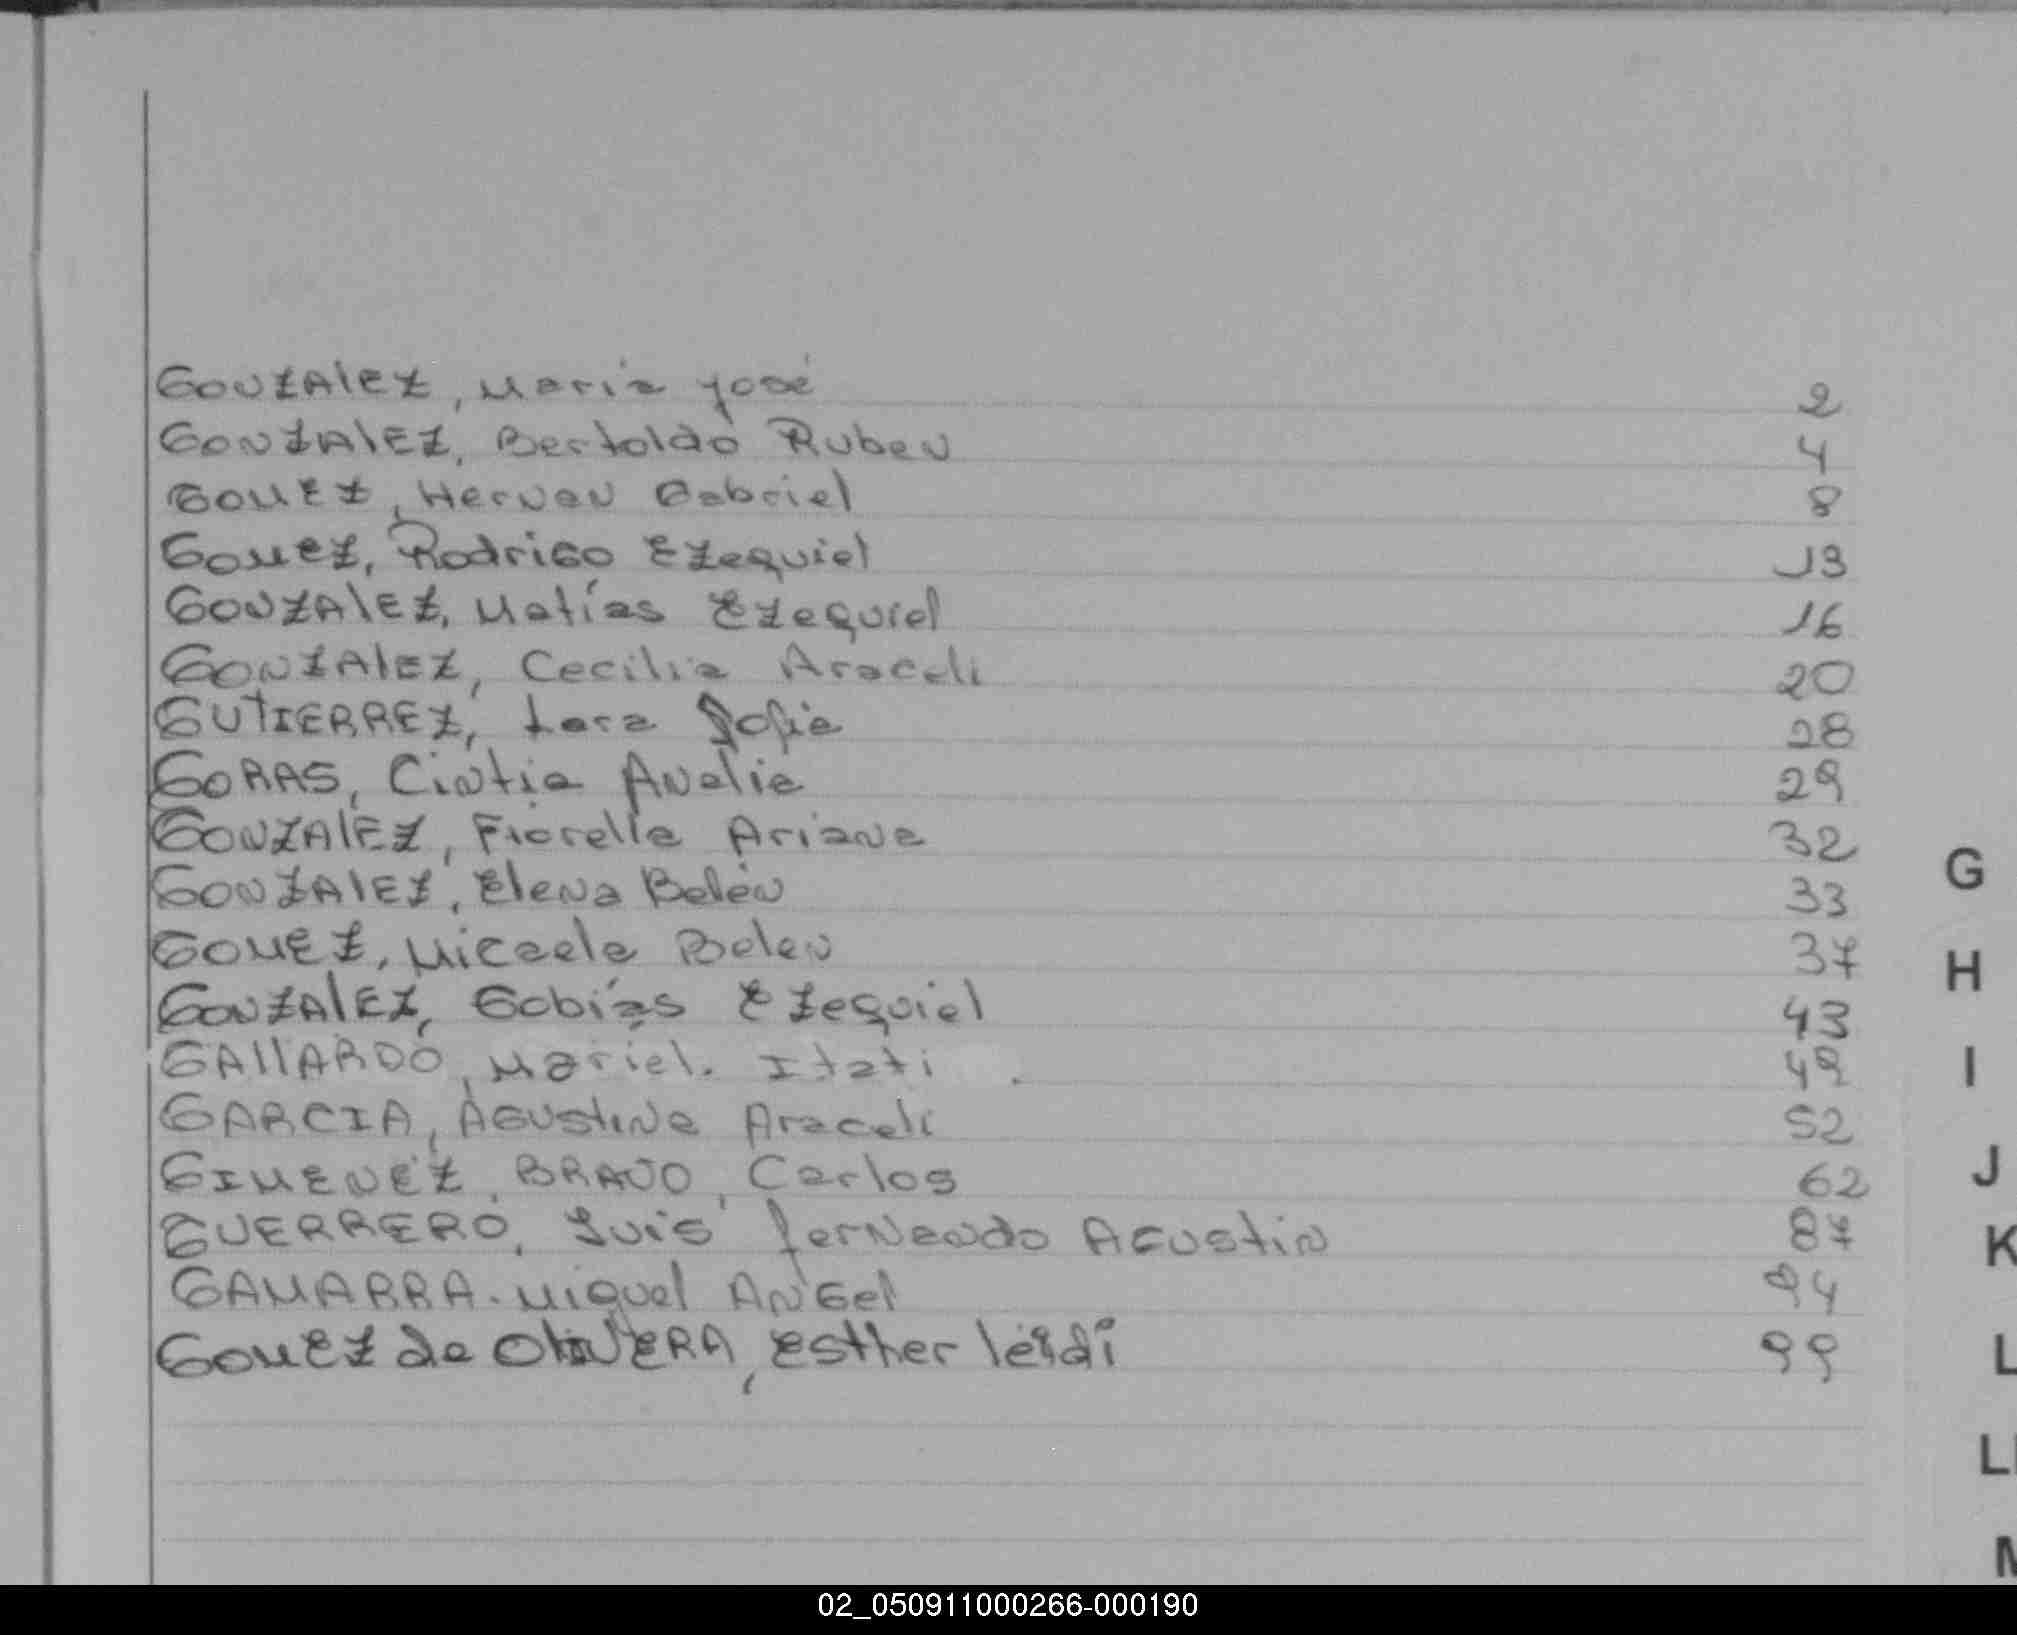 GONZALEZ, Maria José 2
GONZALEZ, Bertoldo Ruben 4
GOMEZ, Hernan Gabriel 8
GOMEZ, Rodrigo Ezequiel 13
GONZALEZ, Matías Ezequiel 16
GONZALEZ, Cecilia Araceli 20
GUTIERREZ, Lara Sofia 28
GORAS, Cintia Analia 29
GONZALEZ, Fiorella Ariana 32
GONZALEZ, Elena Belén 33
GOMEZ, Micaela Belen 37
GONZALEZ, Gobías Ezequiel 43
GALLARDO, Mariel. Itati 49
GARCIA, Agustina Araceli 52
GIMENEZ, BRAVO, Carlos 62
GUERRERO, Luis Fernando Agustin 87
GAMARRA. Miguel Angel 94
GOMEZ de OLIVERA, Esther leidi 99
G
H
I
J
K
L
LL
M
02_050911000266-000190